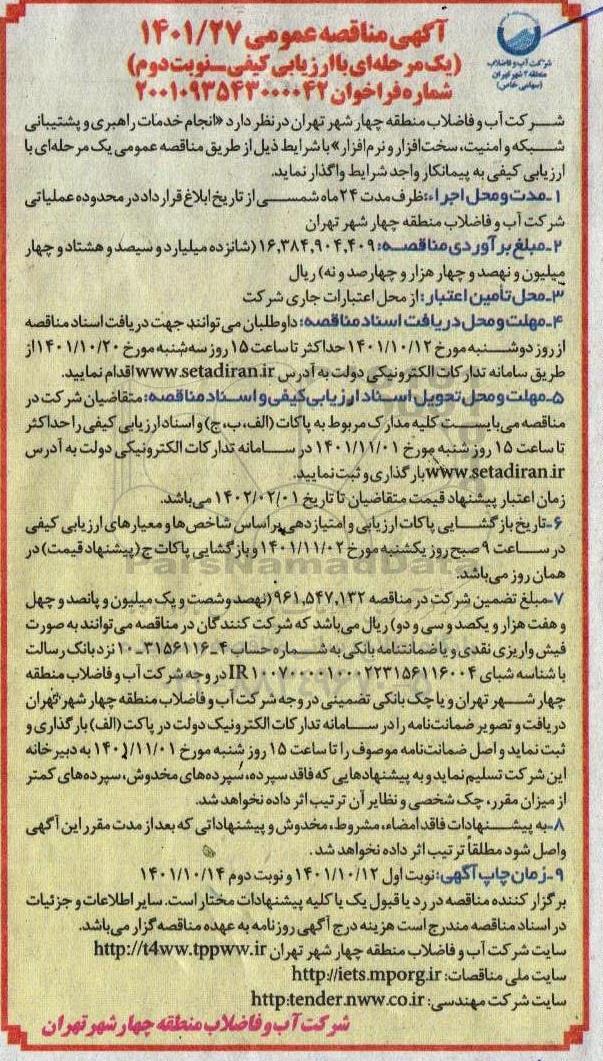 آگهی مناقصه عمومی ۱۴۰۱/۲۷
(یک مرحله‌ای با ارزیابی کیفی ـ نوبت دوم)
شماره فراخوان ۲۰۰۱۰۹۳۵۴۳۰۰۰۰۴۲
شرکت آب و فاضلاب
منطقه ۴ شهر تهران
(سهامی خاص)
شرکت آب و فاضلاب منطقه چهار شهر تهران در نظر دارد «انجام خدمات راهبری و پشتیبانی
شبکه و امنیت، سخت‌افزار و نرم‌افزار» با شرایط ذیل از طریق مناقصه عمومی یک مرحله‌ای با
ارزیابی کیفی به پیمانکار واجد شرایط واگذار نماید.
۱ـ مدت و محل اجراء: ظرف مدت ۲۴ ماه شمسی از تاریخ ابلاغ قرارداد در محدوده عملیاتی
شرکت آب و فاضلاب منطقه چهار شهر تهران
۲ـ مبلغ برآوردی مناقصه: ۱۶,۳۸۴,۹۰۴,۴۰۹ (شانزده میلیارد و سیصد و هشتاد و چهار
میلیون و نهصد و چهار هزار و چهارصد و نه) ریال
۳ـ محل تأمین اعتبار: از محل اعتبارات جاری شرکت
۴ـ مهلت و محل دریافت اسناد مناقصه: داوطلبان می‌توانند جهت دریافت اسناد مناقصه
از روز دوشنبه مورخ ۱۴۰۱/۱۰/۱۲ حداکثر تا ساعت ۱۵ روز سه‌شنبه مورخ ۱۴۰۱/۱۰/۲۰ از
طریق سامانه تدارکات الکترونیکی دولت به آدرس www.setadiran.ir اقدام نمایید.
۵ـ مهلت و محل تحویل اسناد ارزیابی کیفی و اسناد مناقصه: متقاضیان شرکت در
مناقصه می‌بایست کلیه مدارک مربوط به پاکات (الف، ب، ج) و اسناد ارزیابی کیفی را حداکثر
تا ساعت ۱۵ روز شنبه مورخ ۱۴۰۱/۱۱/۰۱ در سامانه تدارکات الکترونیکی دولت به آدرس
www.setadiran.ir بارگذاری و ثبت نمایید.
زمان اعتبار پیشنهاد قیمت متقاضیان تا تاریخ ۱۴۰۲/۰۲/۰۱ می‌باشد.
۶ـ تاریخ بازگشایی پاکات ارزیابی و امتیازدهی براساس شاخص‌ها و معیارهای ارزیابی کیفی
در ساعت ۹ صبح روز یکشنبه مورخ ۱۴۰۱/۱۱/۰۲ و بازگشایی پاکات ج (پیشنهاد قیمت) در
همان روز می‌باشد.
۷ـ مبلغ تضمین شرکت در مناقصه ۹۶۱,۵۴۷,۱۳۲ (نهصد و شصت و یک میلیون و پانصد و چهل
و هفت هزار و یکصد و سی و دو) ریال می‌باشد که شرکت کنندگان در مناقصه می‌توانند به صورت
فیش واریزی نقدی و یا ضمانتنامه بانکی به شماره حساب ۴ـ۳۱۵۶۱۱۶ـ۱۰ نزد بانک رسالت
با شناسه شبای IR۱۰۰۷۰۰۰۰۱۰۰۰۲۲۳۱۵۶۱۱۶۰۰۴ در وجه شرکت آب و فاضلاب منطقه
چهار شهر تهران و یا چک بانکی تضمینی در وجه شرکت آب و فاضلاب منطقه چهار شهر تهران
دریافت و تصویر ضمانت‌نامه را در سامانه تدارکات الکترونیک دولت در پاکت (الف) بارگذاری و
ثبت نماید و اصل ضمانت‌نامه موصوف را تا ساعت ۱۵ روز شنبه مورخ ۱۴۰۱/۱۱/۰۱ به دبیرخانه
این شرکت تسلیم نماید و به پیشنهادهایی که فاقد سپرده، سپرده‌های مخدوش، سپرده‌های کمتر
از میزان مقرر، چک شخصی و نظایر آن ترتیب اثر داده نخواهد شد.
۸ـ به پیشنهادات فاقد امضاء، مشروط، مخدوش و پیشنهاداتی که بعد از مدت مقرر این آگهی
واصل شود مطلقاً ترتیب اثر داده نخواهد شد.
۹ـ زمان چاپ آگهی: نوبت اول ۱۴۰۱/۱۰/۱۲ و نوبت دوم ۱۴۰۱/۱۰/۱۴
برگزار کننده مناقصه در رد یا قبول یک یا کلیه پیشنهادات مختار است. سایر اطلاعات و جزئیات
در اسناد مناقصه مندرج است هزینه درج آگهی روزنامه به عهده مناقصه گزار می‌باشد.
سایت شرکت آب و فاضلاب منطقه چهار شهر تهران http://t4ww.tppww.ir
سایت ملی مناقصات: http://iets.mporg.ir
سایت شرکت مهندسی: http:tender.nww.co.ir
شرکت آب و فاضلاب منطقه چهار شهر تهران
ParsNamadData